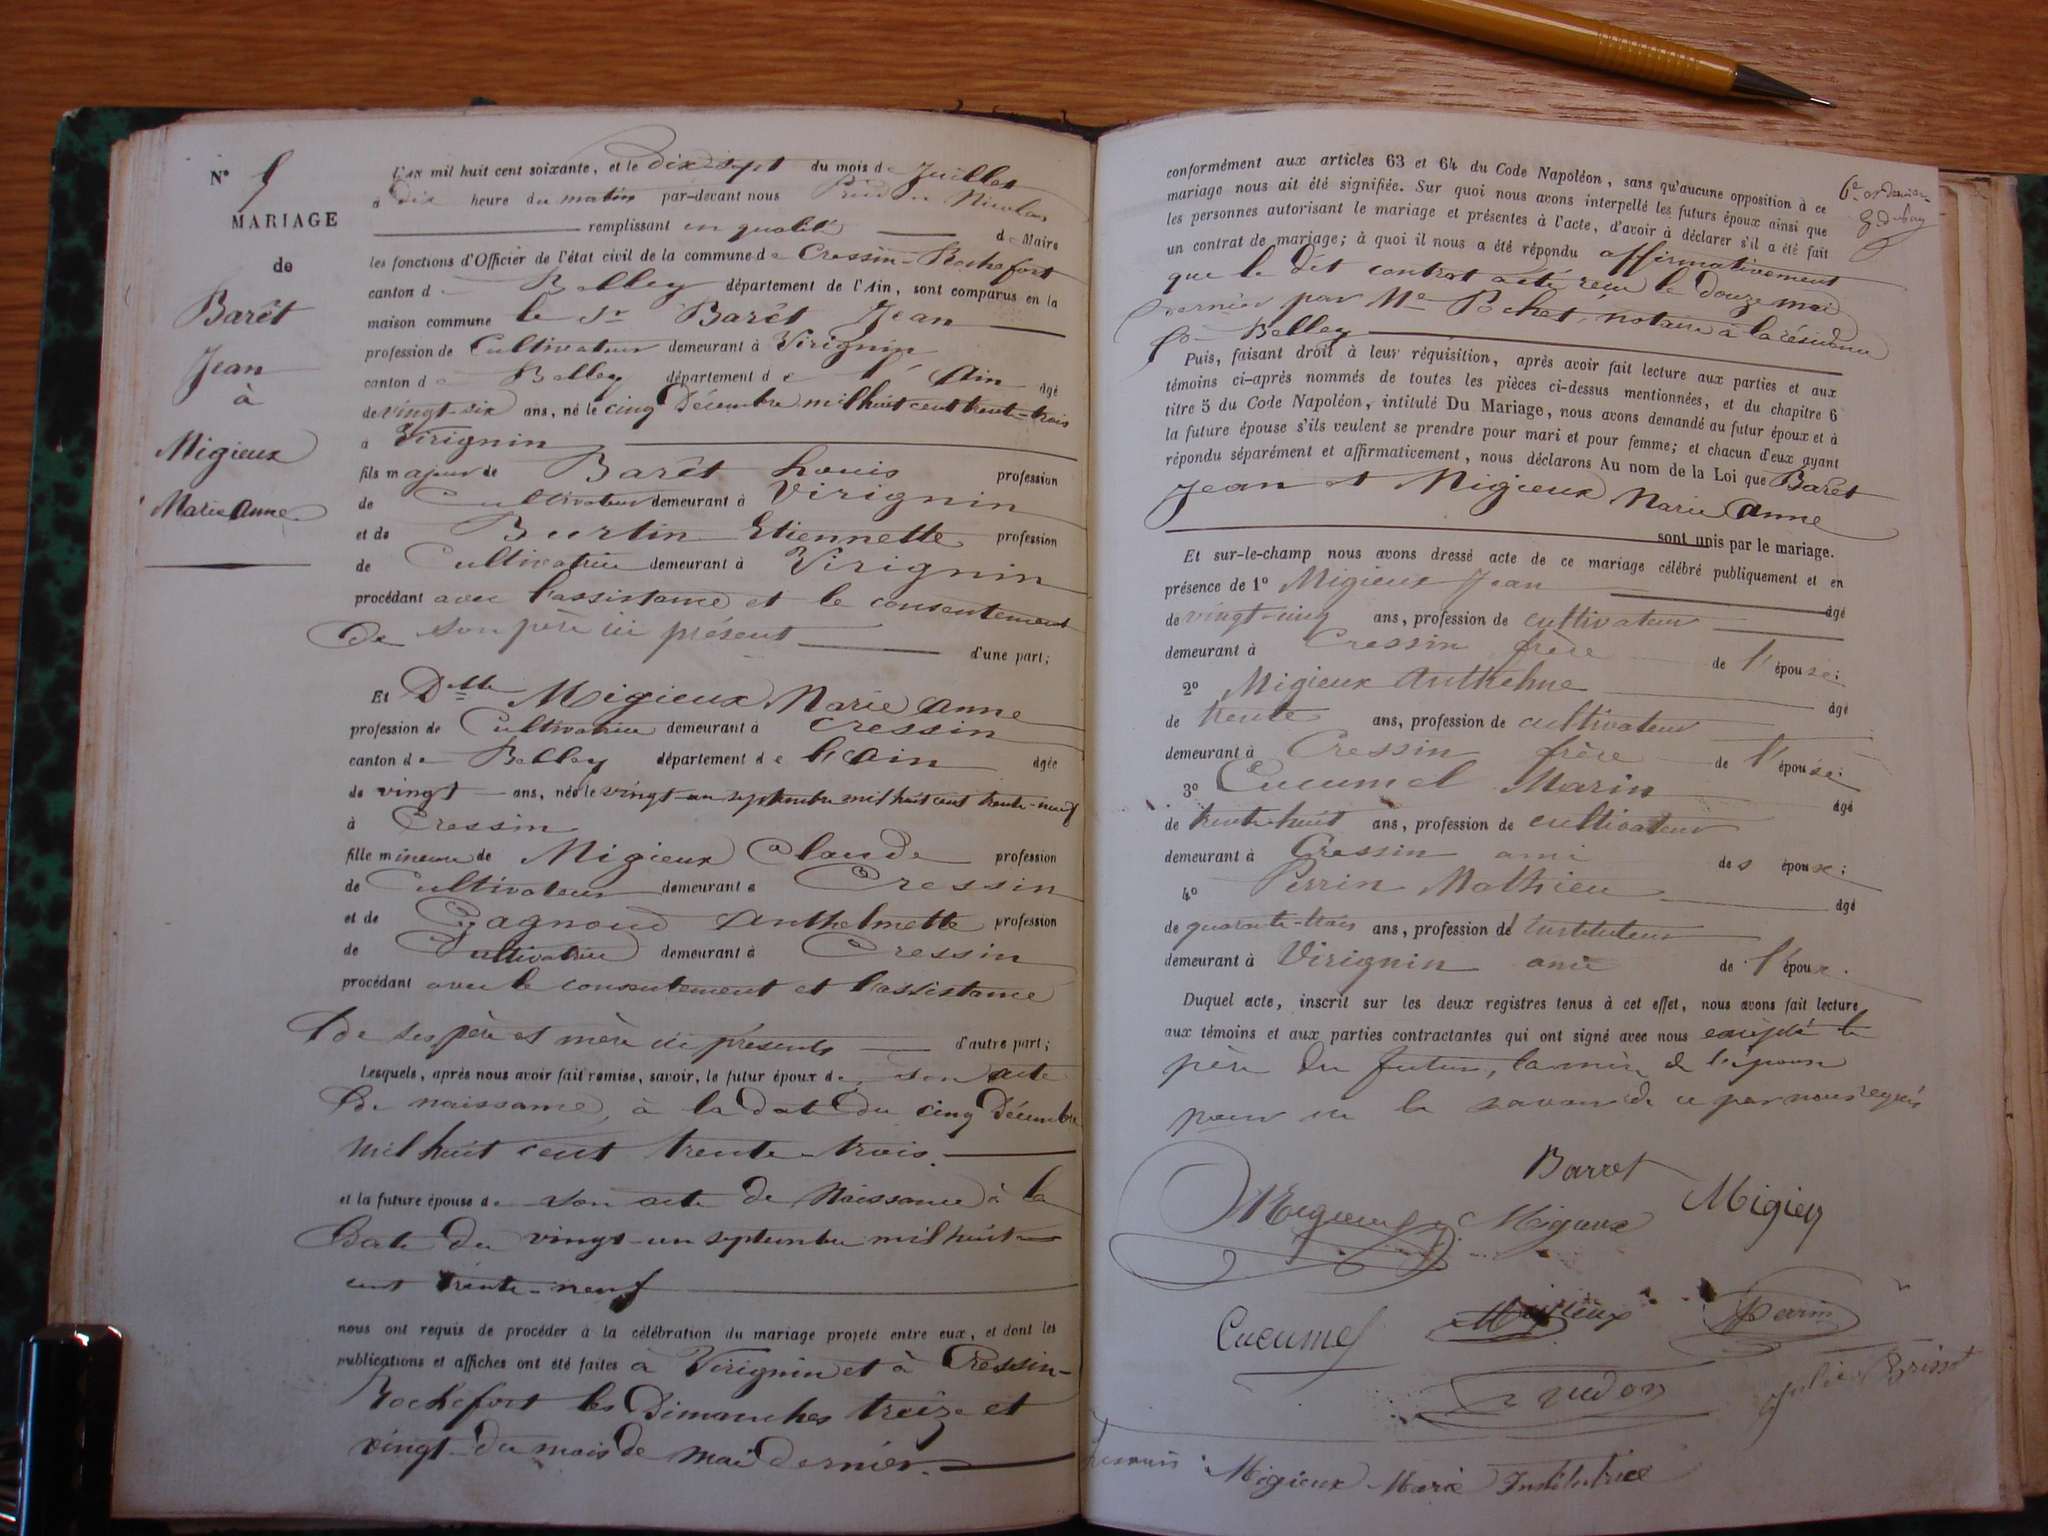 N° 5
MARIAGE
de
Barêt
Jean
à
Migieux
Marie Anne
L'an mil huit cent soixante, et le dix sept du mois de Juillet
à dix heure du matin par-devant nous Nicolas
remplissant en qualité de Maire
les fonctions d'Officier de l'état civil de la commune de Cressin-Rochefort
canton de Belley département de l'Ain, sont comparus en la
maison commune le Sr Barêt Jean
profession de Cultivateur demeurant à Virignin
canton de Belley département de l'Ain âgé
de vingt-six ans, né le cinq Décembre mil huit cent trente-trois
à Virignin
fils majeur de Barêt Louis profession
de Cultivateur demeurant à Virignin
et de Burtin Etiennette profession
de Cultivatrice demeurant à Virignin
procédant avec l'assistance et le consentement
de son père ici présent d'une part;
Et Delle Migieux Marie Anne
profession de Cultivatrice demeurant à Cressin
canton de Belley département de l'Ain âgée
de vingt ans, née le vingt-un septembre mil huit cent trente-neuf
à Cressin
fille mineure de Migieux Claude profession
de Cultivateur demeurant à Cressin
et de Gagnoud Anthelmette profession
de Cultivatrice demeurant à Cressin
procédant avec le consentement et l'assistance
de ses père et mère ici présents d'autre part;
Lesquels, après nous avoir fait remise, savoir, le futur époux de son acte
de naissance, à la date du cinq Décembre
mil huit cent trente-trois.
et la future épouse de son acte de Naissance à la
date du vingt-un septembre mil huit
cent trente-neuf
nous ont requis de procéder à la célébration du mariage projeté entre eux, et dont les
publications et affiches ont été faites à Virignin et à Cressin-
Rochefort les Dimanches treize et
vingt du mois de mai dernier.
conformément aux articles 63 et 64 du Code Napoléon, sans qu'aucune opposition à ce
mariage nous ait été signifiée. Sur quoi nous avons interpellé les futurs époux ainsi que
les personnes autorisant le mariage et présentes à l'acte, d'avoir à déclarer s'il a été fait
un contrat de mariage; à quoi il nous a été répondu affirmativement
que le dit contrat a été recu le douze mai
dernier par Me Bchet, notaire à la résidence
de Belley
Puis, faisant droit à leur réquisition, après avoir fait lecture aux parties et aux
témoins ci-après nommés de toutes les pièces ci-dessus mentionnées, et du chapitre 6
titre 5 du Code Napoléon, intitulé Du Mariage, nous avons demandé au futur époux et à
la future épouse s'ils veulent se prendre pour mari et pour femme; et chacun d'eux ayant
répondu séparément et affirmativement, nous déclarons Au nom de la Loi que Barêt
Jean et Migieux Marie Anne
sont unis par le mariage.
Et sur-le-champ nous avons dressé acte de ce mariage célébré publiquement et en
présence de 1° Migieux Jean âgé
de vingt-cinq ans, profession de cultivateur
demeurant à Cressin frère de l'épouse;
2° Migieux Anthelme âgé
de trente ans, profession de cultivateur
demeurant à Cressin frère de l'épouse;
3° Cucumel Marin âgé
de trente-huit ans, profession de cultivateur
demeurant à Cressin ami des époux;
4° Perrin Mathieu âgé
de quarante-trois ans, profession d'instituteur
demeurant à Virignin ami de l'époux.
Duquel acte, inscrit sur les deux registres tenus à cet effet, nous avons fait lecture
aux témoins et aux parties contractantes qui ont signé avec nous excepté le
père du futur, la mère de l'époux
pour ne le savoir de ce par nous requis
Barret
Migieux Migieux Migieux
Cucumel Migieux Perrin
Julie Brissot
Migieux Marie Institutrice